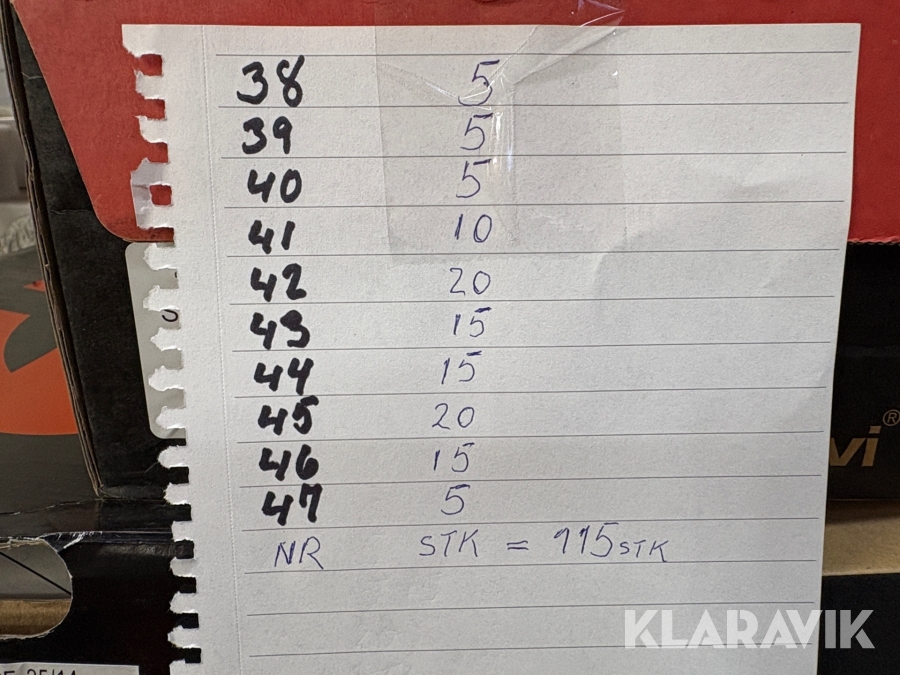 38 5
39 5
40 5
41 10
42 20
43 15
44 15
45 20
46 15
47 5
NR STK = 115 STK
vi®
KLARAVIK